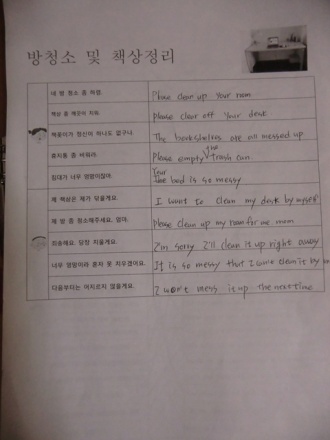 방청소 및 책상정리
네 방 청소 좀 하렴.
Please clean up your room
책상 좀 깨끗이 치워.
please clear off your desk
책꽂이가 정신이 하나도 없구나.
The bookshelves are all messed up
휴지통 좀 비워라.
Please empty the trash can
침대가 너무 엉망이잖아.
Your bed is so messy
제 책상은 제가 닦을게요.
I want to clean my desk by myself
제 방 좀 청소해주세요. 엄마.
please clean up my room for me mom
죄송해요. 당장 치울게요.
I'm sorry. I'll clean it up right away
너무 엉망이라 혼자 못 치우겠어요.
It is so messy that I can't clean it by
다음부터는 어지르지 않을게요.
I won't mess it up the next time